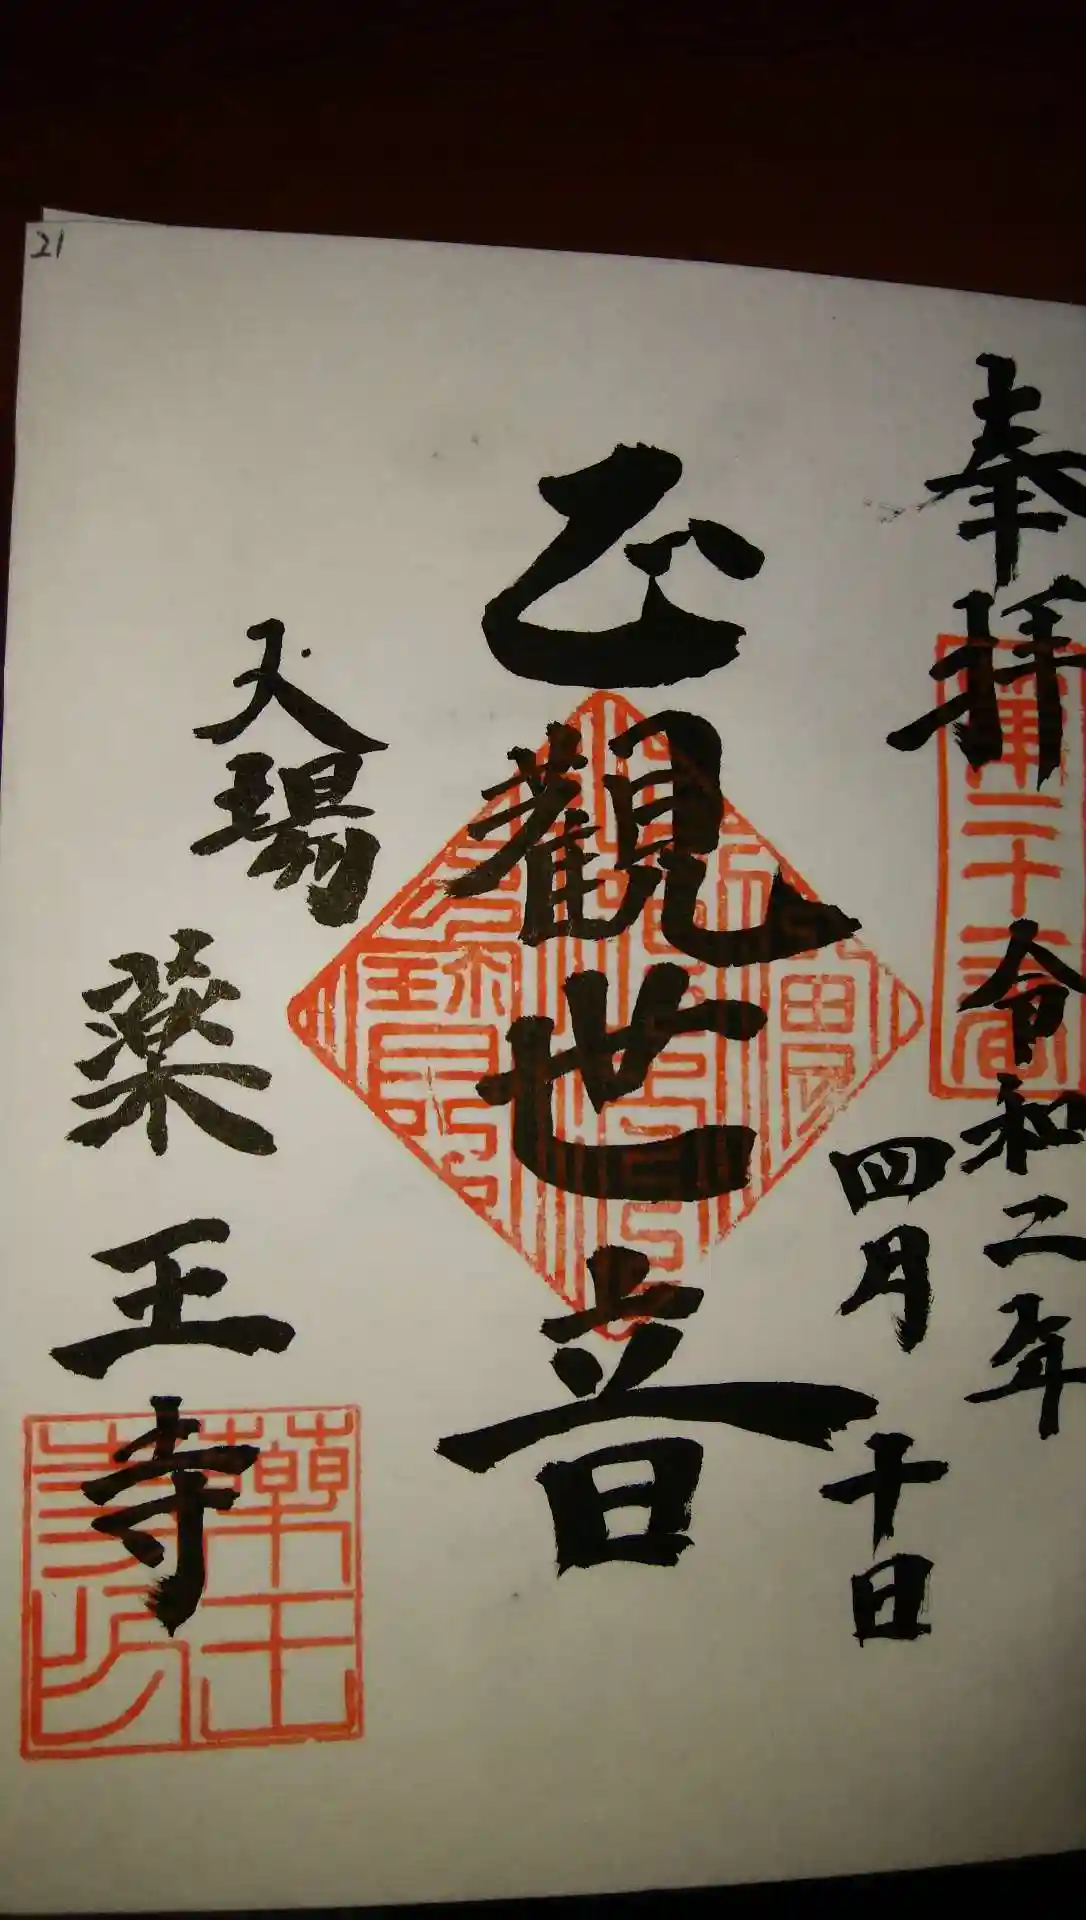 21
奉拝
第二十一番
令和二年
四月十日
正觀世音
大場
薬王寺
藥王寺印